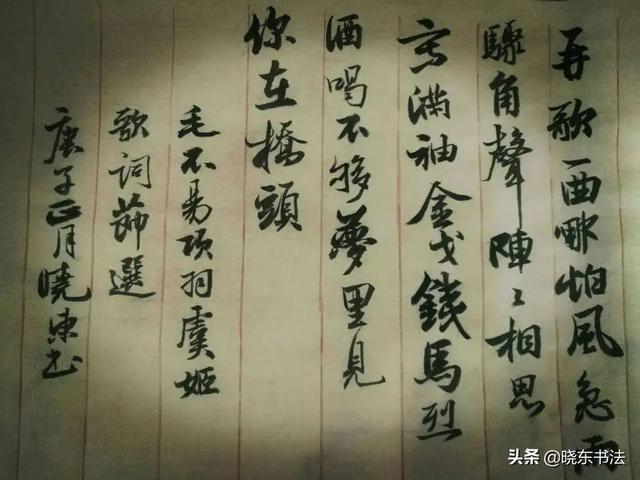 再歌一曲哪怕風急雨
驟角聲陣〻相思
滿袖金戈鐵馬烈
酒喝不够夢里見
你在橋頭
毛不易项羽虞姬
歌词節選
庚子正月曉东书
头条@晓东书法